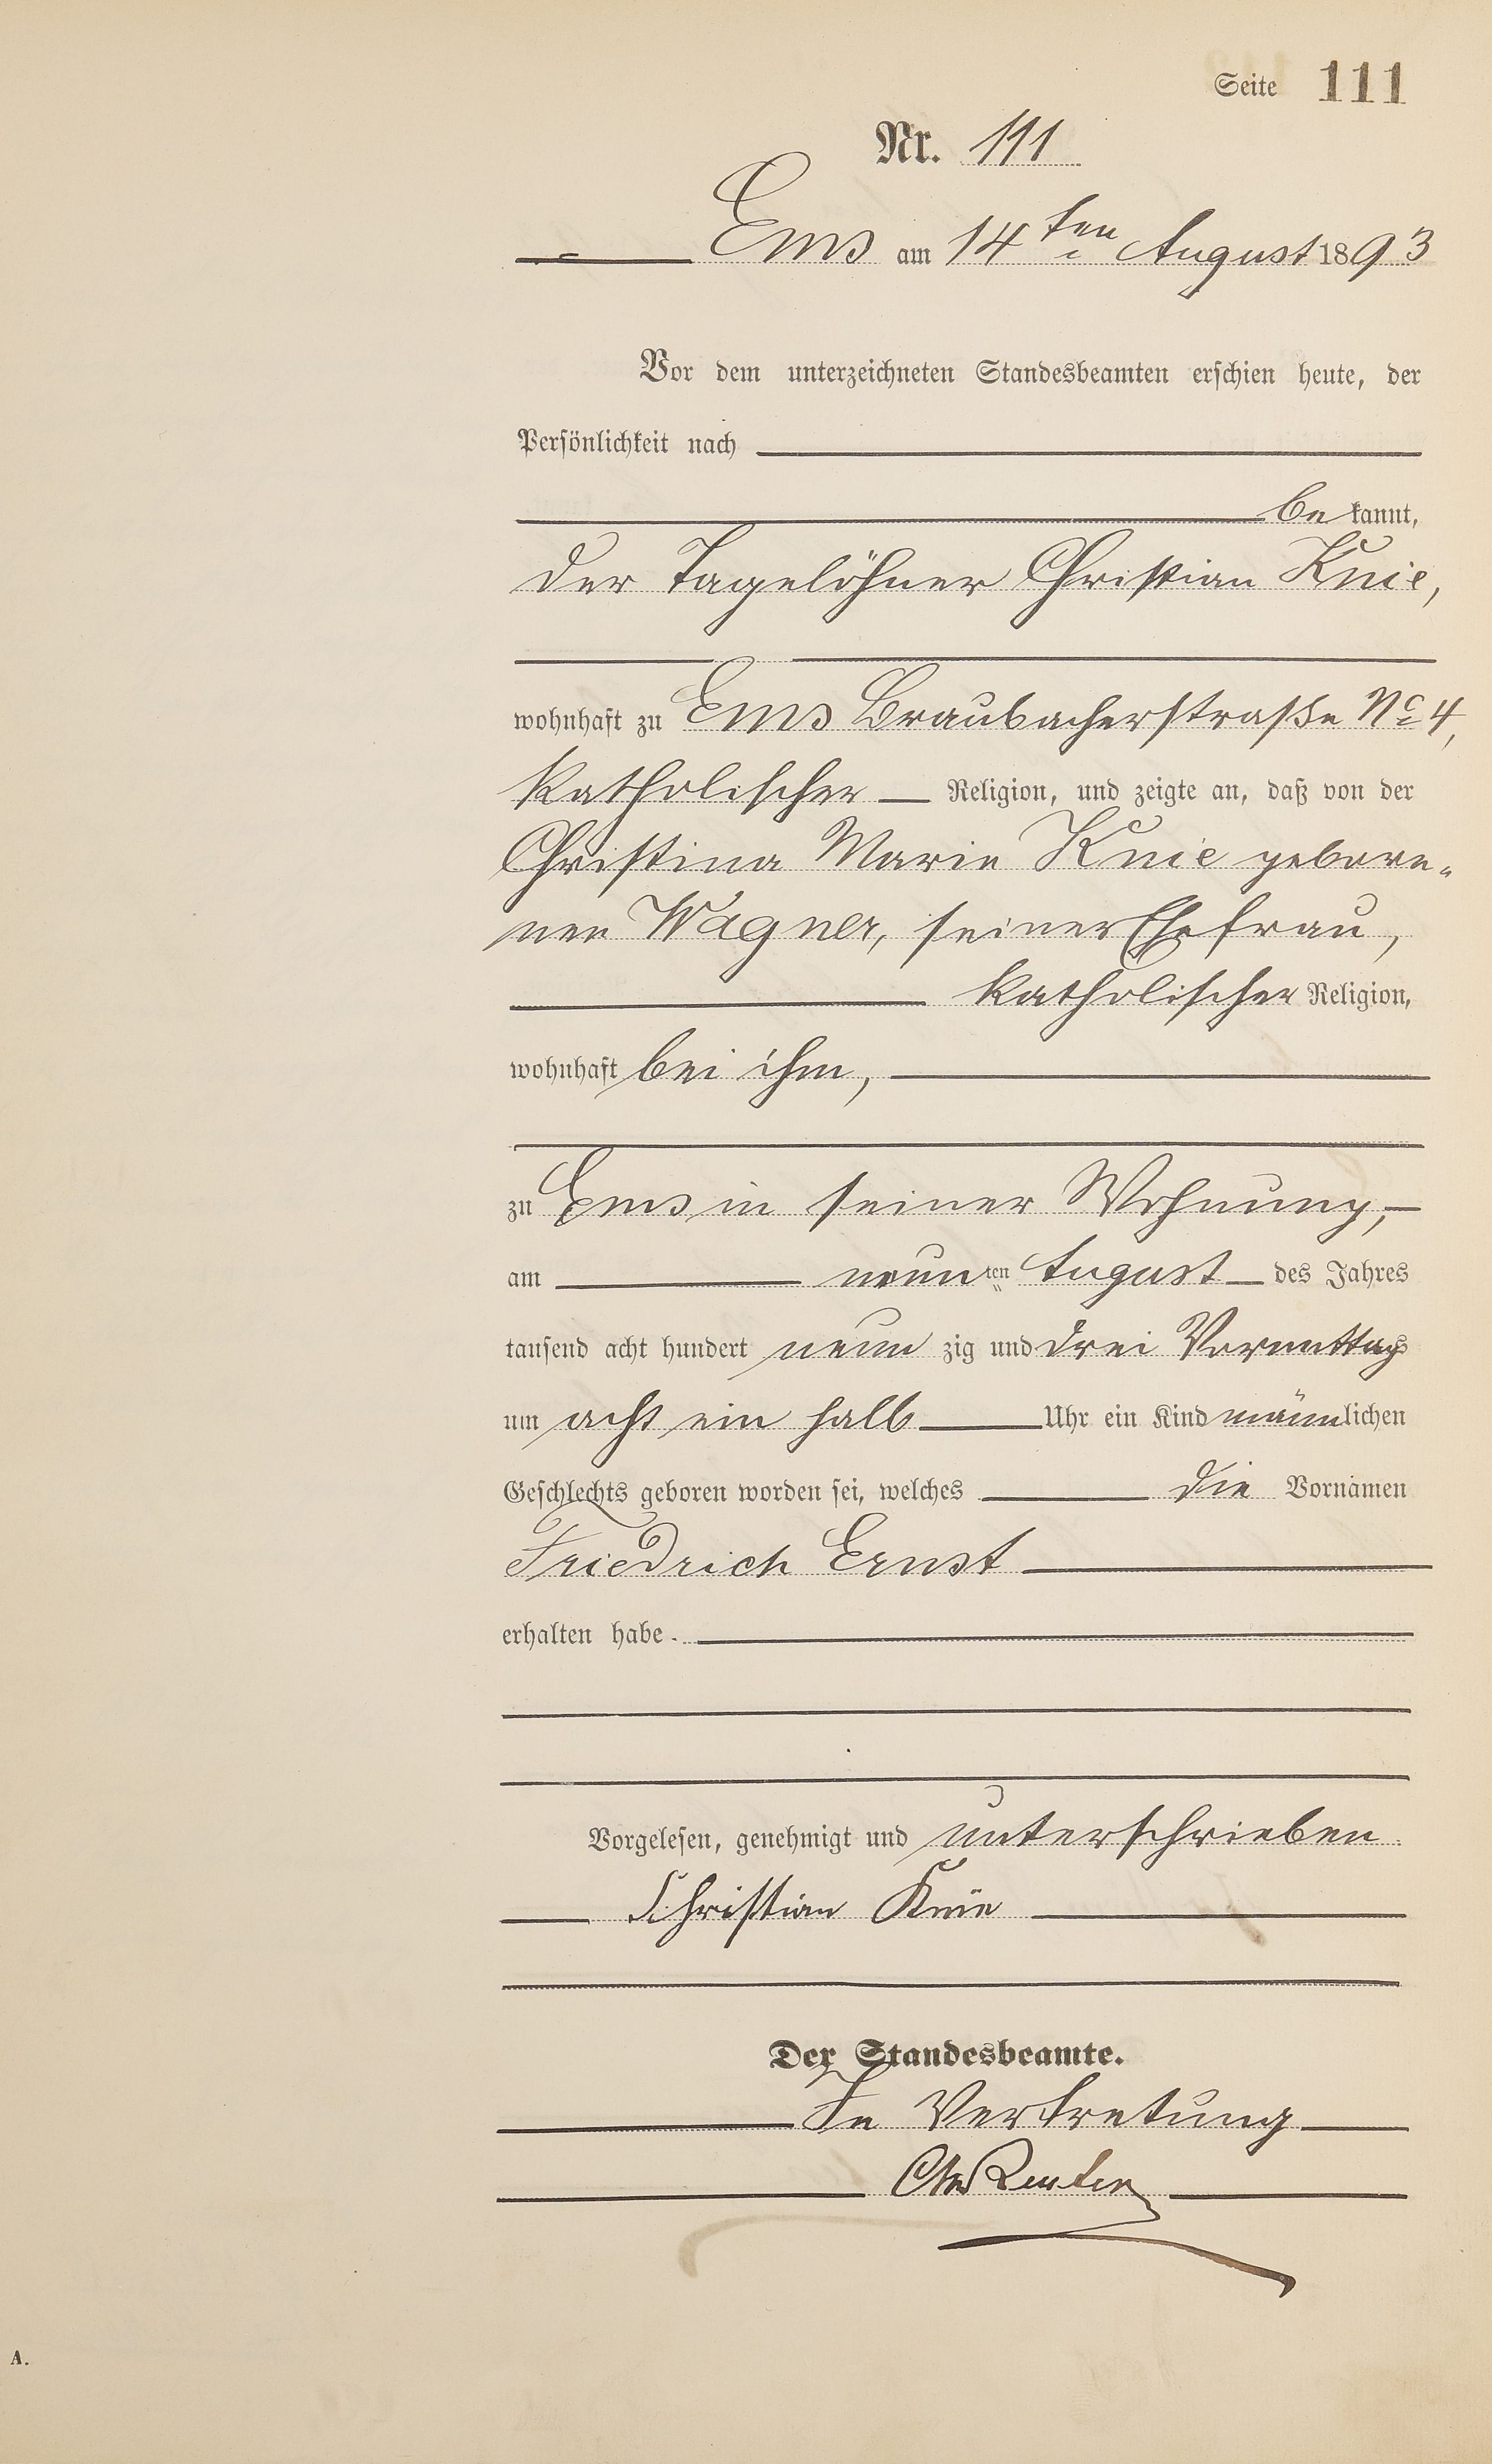 Seite 111
Nr. 111
Ems am 14ten August 1893
Vor dem unterzeichneten Standesbeamten erschien heute, der
Persönlichkeit nach
bekannt,
der Tagelöhner Christian Knie,
wohnhaft zu Ems Braubacherstraße No 4,
katholischer Religion, und zeigte an, daß von der
Christina Marie Knie gebore-
nen Wagner, seiner Ehefrau,
katholischer Religion,
wohnhaft bei ihm,
zu Ems in seiner Wohnung,
am neunten August des Jahres
tausend acht hundert neunzig und drei Vormittags
um acht ein halb Uhr ein Kind männlichen
Geschlechts geboren worden sei, welches die Vornamen
Friedrich Ernst
erhalten habe.
Vorgelesen, genehmigt und unterschrieben
Christian Knie
Der Standesbeamte.
In Vertretung
A.